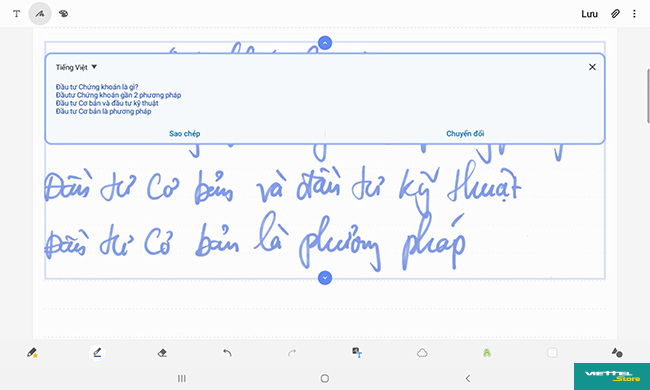 T
Lưu
Tiếng Việt
Đầu tư Chứng khoán là gì?
Đầutư Chứng khoán gần 2 phương pháp
Đầu tư Cơ bản và đầu tư kỹ thuật
Đầu tư Cơ bản là phương pháp
Sao chép
Chuyển đổi
Đầu tư Cơ bản và đầu tư kỹ thuật
Đầu tư Cơ bản là phương pháp
VIETTEL
Store